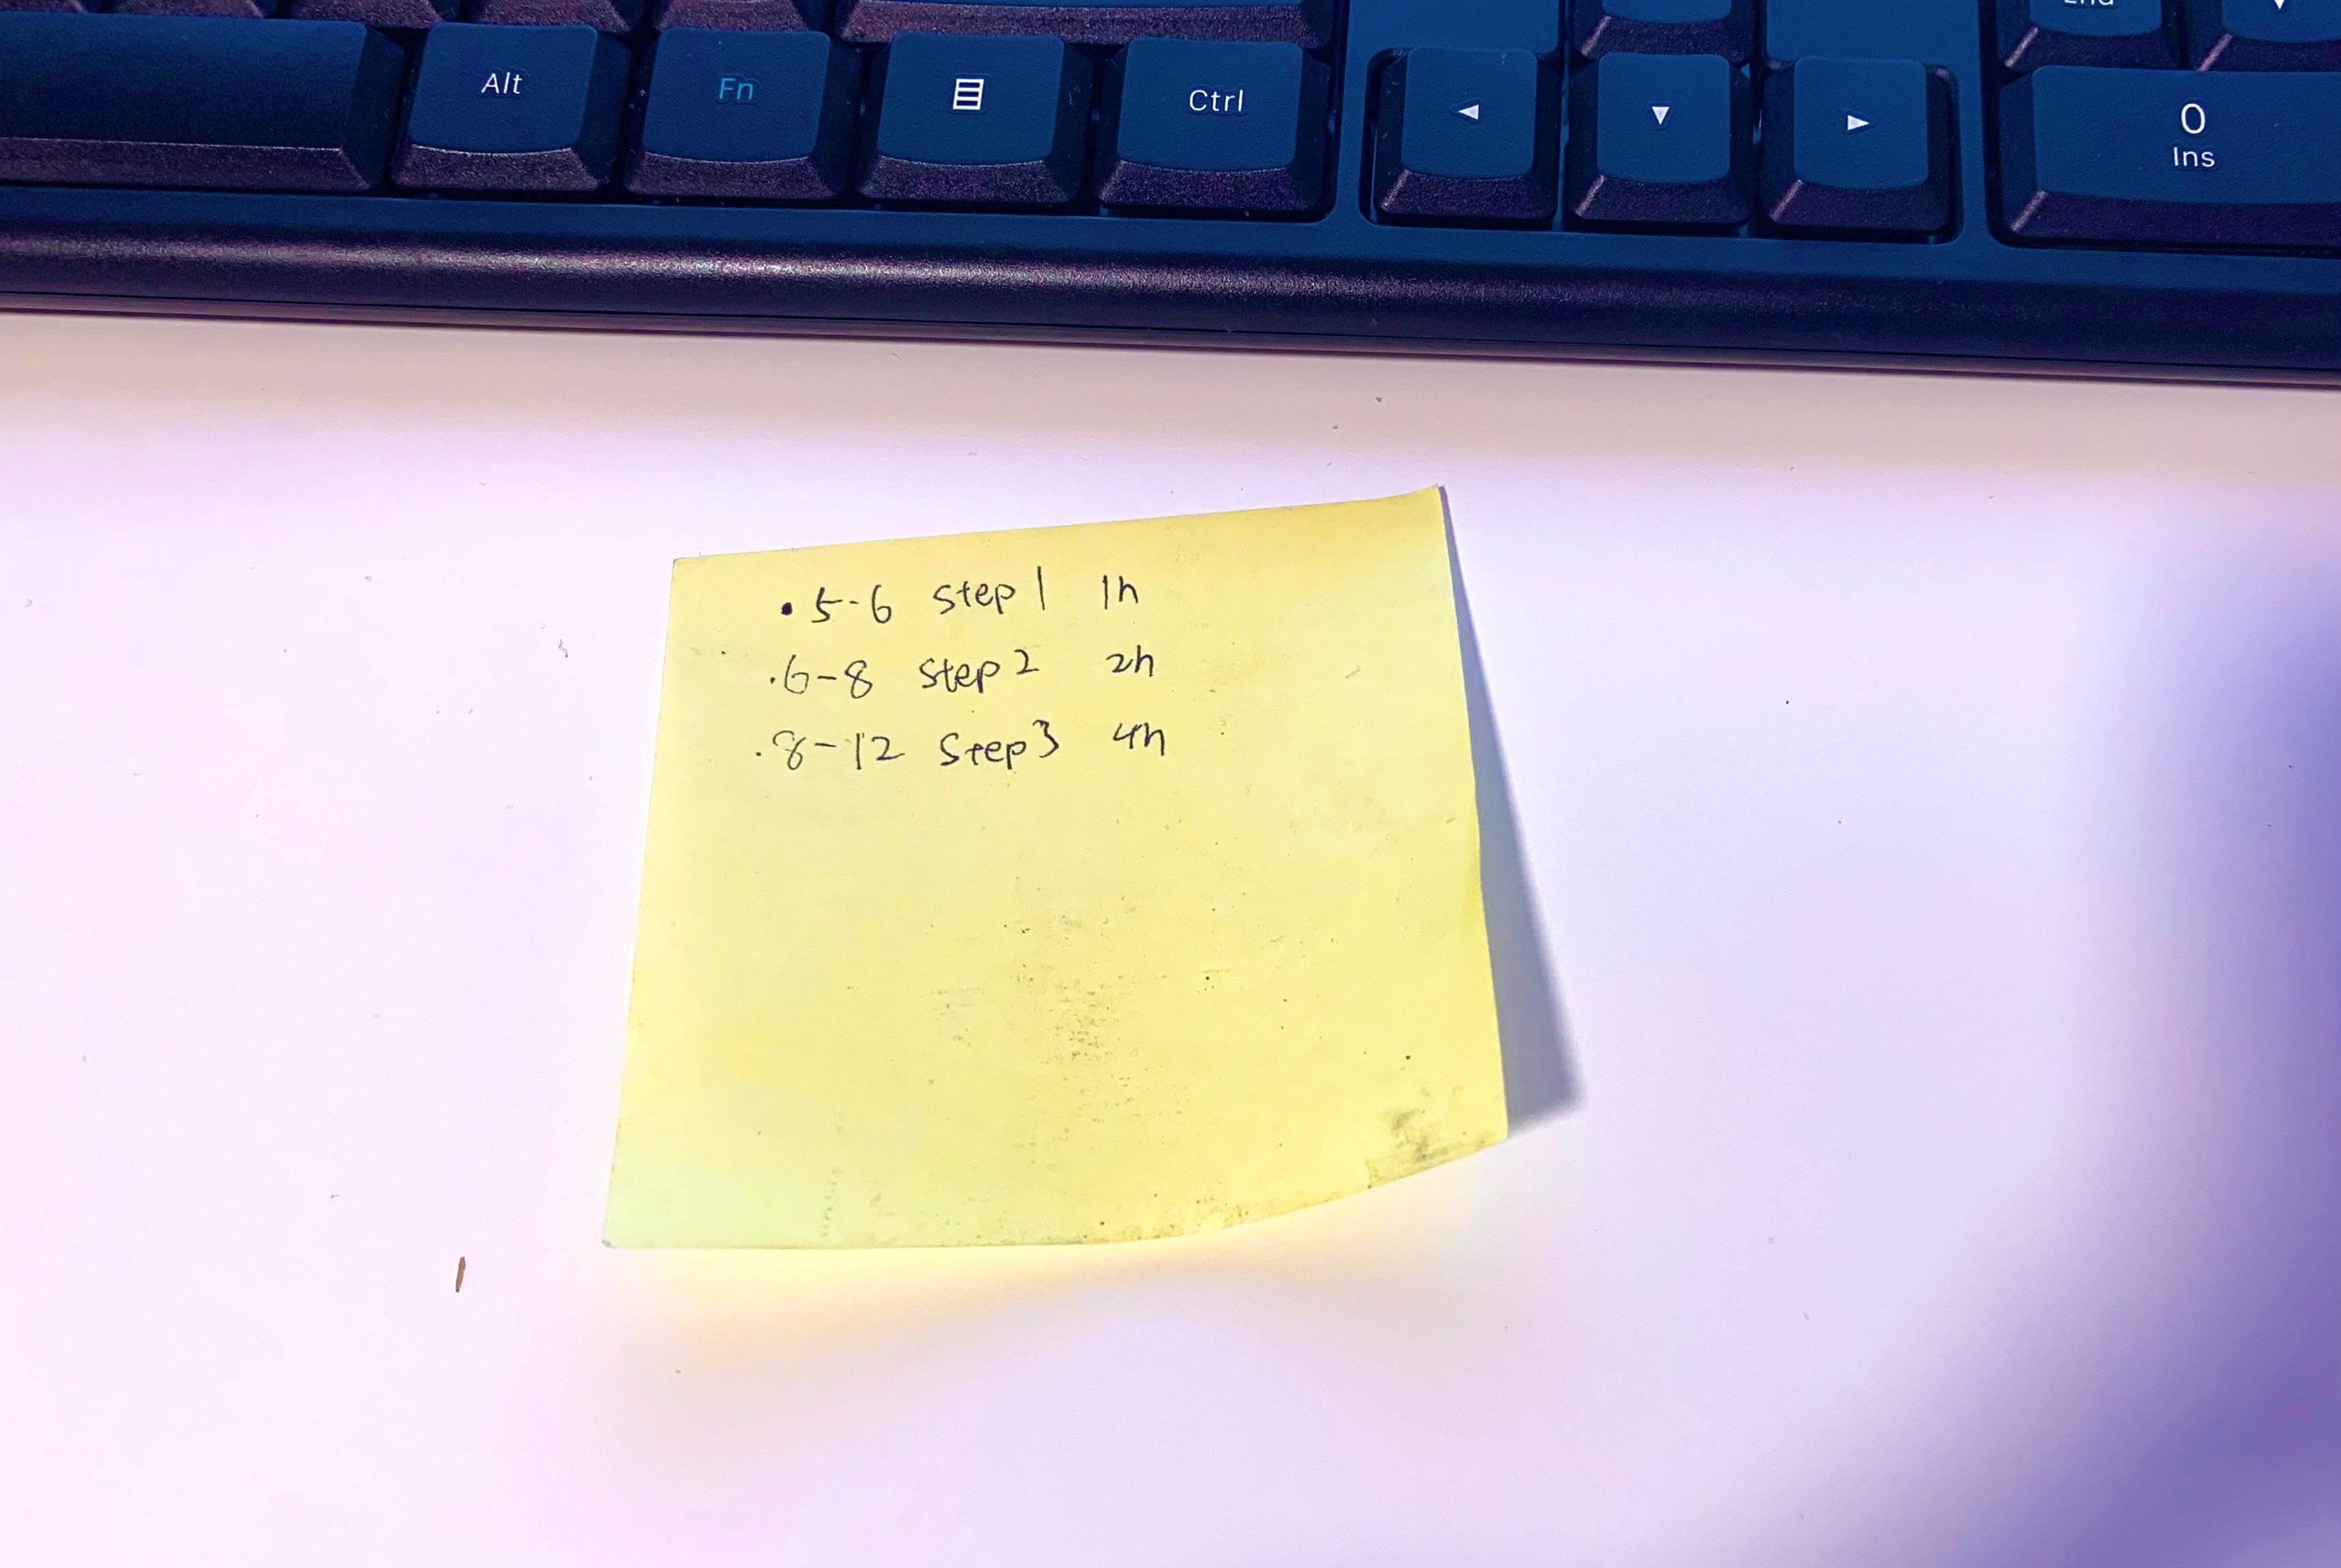 End
Alt Fn Ctrl 0
Ins
.5-6 step1 1h
.6-8 step2 2h
.8-12 step3 4h